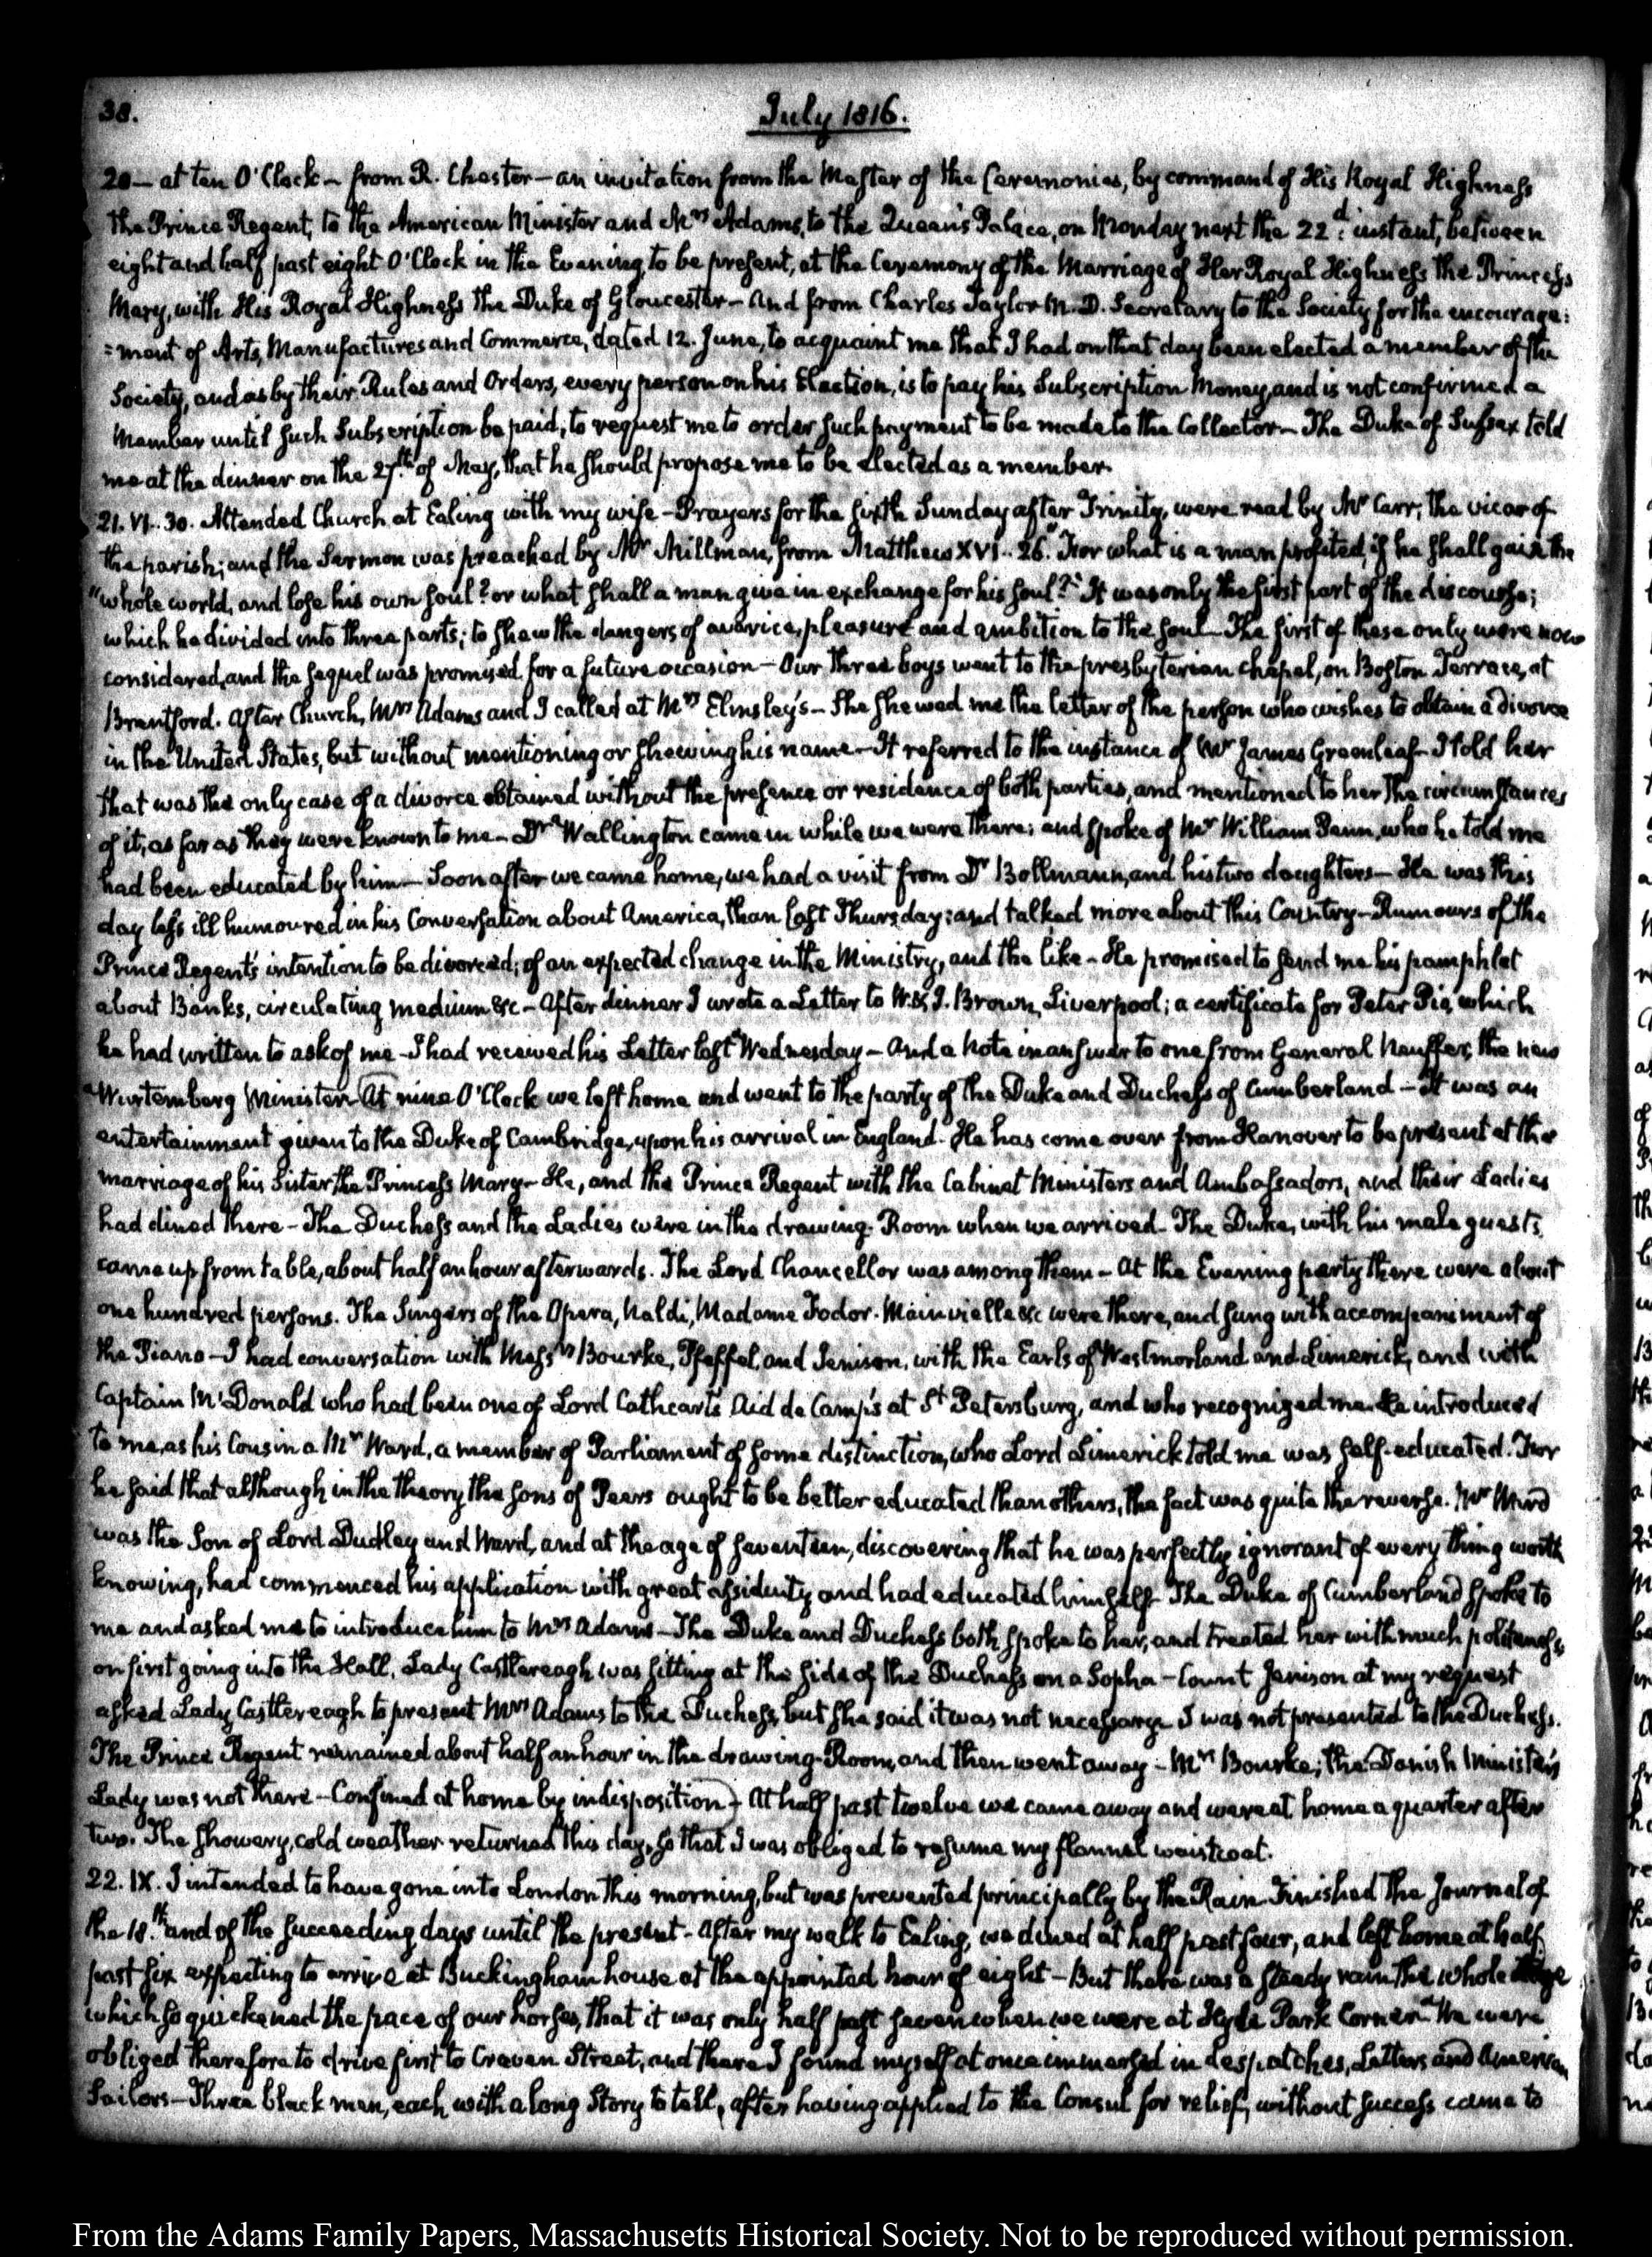 38.
July 1816.
20 — at ten O'Clock — from R. Chester — an invitation from the Master of the Ceremonies, by command of His Royal Highness
the Prince Regent, to the American Minister and Mrs Adams, to the Queen's Palace, on Monday next the 22d. instant, between
eight and half past eight O'Clock in the Evening, to be present, at the Ceremony of the Marriage of Her Royal Highness the Princess
Mary, with His Royal Highness the Duke of Gloucester — And from Charles Taylor M.D. Secretary to the Society for the encourage:
=ment of Arts, Manufactures and Commerce, dated 12. June, to acquaint me that I had on that day been elected a member of the
Society, and as by their Rules and Orders, every person on his Election, is to pay his Subscription Money, and is not confirmed a
Member until such Subscription be paid, to request me to order such payment to be made to the Collector — The Duke of Sussex told
me at the dinner on the 27th. of May, that he should propose me to be elected as a member.
21. VI. 30. Attended Church at Ealing with my wife — Prayers for the sixth Sunday after Trinity, were read by Mr Carr, the vicar of
the parish; and the Sermon was preached by Mr Millman, from Matthew XVI. 26. "For what is a man profited, if he shall gain the
"whole world, and lose his own soul? or what shall a man give in exchange for his soul?" It was only the first part of the discourse;
which he divided into three parts; to shew the dangers of avarice, pleasure and ambition to the soul — The first of these only were now
considered, and the sequel was promised for a future occasion — Our three boys went to the presbyterian chapel, on Boston Terrace, at
Brentford. After Church, Mrs Adams and I called at Mrs Elmsley's — She shewed me the letter of the person who wishes to obtain a divorce
in the United States, but without mentioning or shewing his name — It referred to the instance of Mr James Greenleaf — I told her
that was the only case of a divorce obtained without the presence or residence of both parties, and mentioned to her the circumstances
of it, as far as they were known to me — Dr Wallington came in while we were there; and spoke of Mr William Penn, who he told me
had been educated by him — Soon after we came home, we had a visit from Dr Bollmann, and his two daughters — He was this
day less ill humoured in his Conversation about America, than last Thursday; and talked more about this Country — Rumours of the
Prince Regent's intention to be divorced; of an expected change in the Ministry, and the like — He promised to send me his pamphlet
about Banks, circulating medium &c — After dinner I wrote a Letter to W. & J. Brown, Liverpool; a certificate for Peter Pie, which
he had written to ask of me — I had received his Letter last Wednesday — And a Note in answer to one from General Neuffer, the new
Wurtemberg Minister — At nine O'Clock we left home and went to the party of the Duke and Duchess of Cumberland — It was an
entertainment given to the Duke of Cambridge, upon his arrival in England. He has come over from Hanover to be present at the
marriage of his Sister the Princess Mary — He, and the Prince Regent with the Cabinet Ministers and Ambassadors, and their Ladies
had dined there — The Duchess and the Ladies were in the drawing-Room when we arrived — The Duke, with his male guests
came up from table, about half an hour afterwards. The Lord Chancellor was among them — At the Evening party there were about
one hundred persons. The Singers of the Opera, Naldi, Madame Fodor-Mainvielle &c were there, and sung with accompaniment of
the Piano — I had conversation with Messrs Bourke, Pfeffel, and Jenison, with the Earls of Westmorland and Limerick, and with
Captain McDonald who had been one of Lord Cathcart's Aid de Camp's at St Petersburg, and who recognized me. He introduced
to me, as his Cousin a Mr Ward, a member of Parliament of some distinction, who Lord Limerick told me was self-educated. For
he said that although in the theory the sons of Peers ought to be better educated than others, the fact was quite the reverse. Mr Ward
was the Son of Lord Dudley and Ward, and at the age of seventeen, discovering that he was perfectly ignorant of every thing worth
knowing, had commenced his application with great assiduity and had educated himself — The Duke of Cumberland spoke to
me and asked me to introduce him to Mrs Adams — The Duke and Duchess both spoke to her, and treated her with much politeness,
on first going into the Hall, Lady Castlereagh was sitting at the side of the Duchess on a Sopha — Count Jenison at my request
asked Lady Castlereagh to present Mrs Adams to the Duchess, but she said it was not necessary. I was not presented to the Duchess.
The Prince Regent remained about half an hour in the drawing-Room, and then went away — Mrs Bourke, the Danish Minister's
Lady was not there — Confined at home by indisposition — At half past twelve we came away and were at home a quarter after
two. The showery, cold weather returned this day, so that I was obliged to resume my flannel waistcoat.
22. IX. I intended to have gone into London this morning, but was prevented principally by the Rain. Finished the Journal of
the 18th. and of the succeeding days until the present — After my walk to Ealing, we dined at half past four, and left home at half
past six expecting to arrive at Buckingham house at the appointed hour of eight — But there was a steady rain the whole
which so quickened the pace of our horses, that it was only half past seven when we were at Hyde Park Corner. We were
obliged therefore to drive first to Craven Street; and there I found myself at once immersed in despatches, Letters and American
Sailors — Three black men, each with a long story to tell, after having applied to the Consul for relief, without success came to
From the Adams Family Papers, Massachusetts Historical Society. Not to be reproduced without permission.